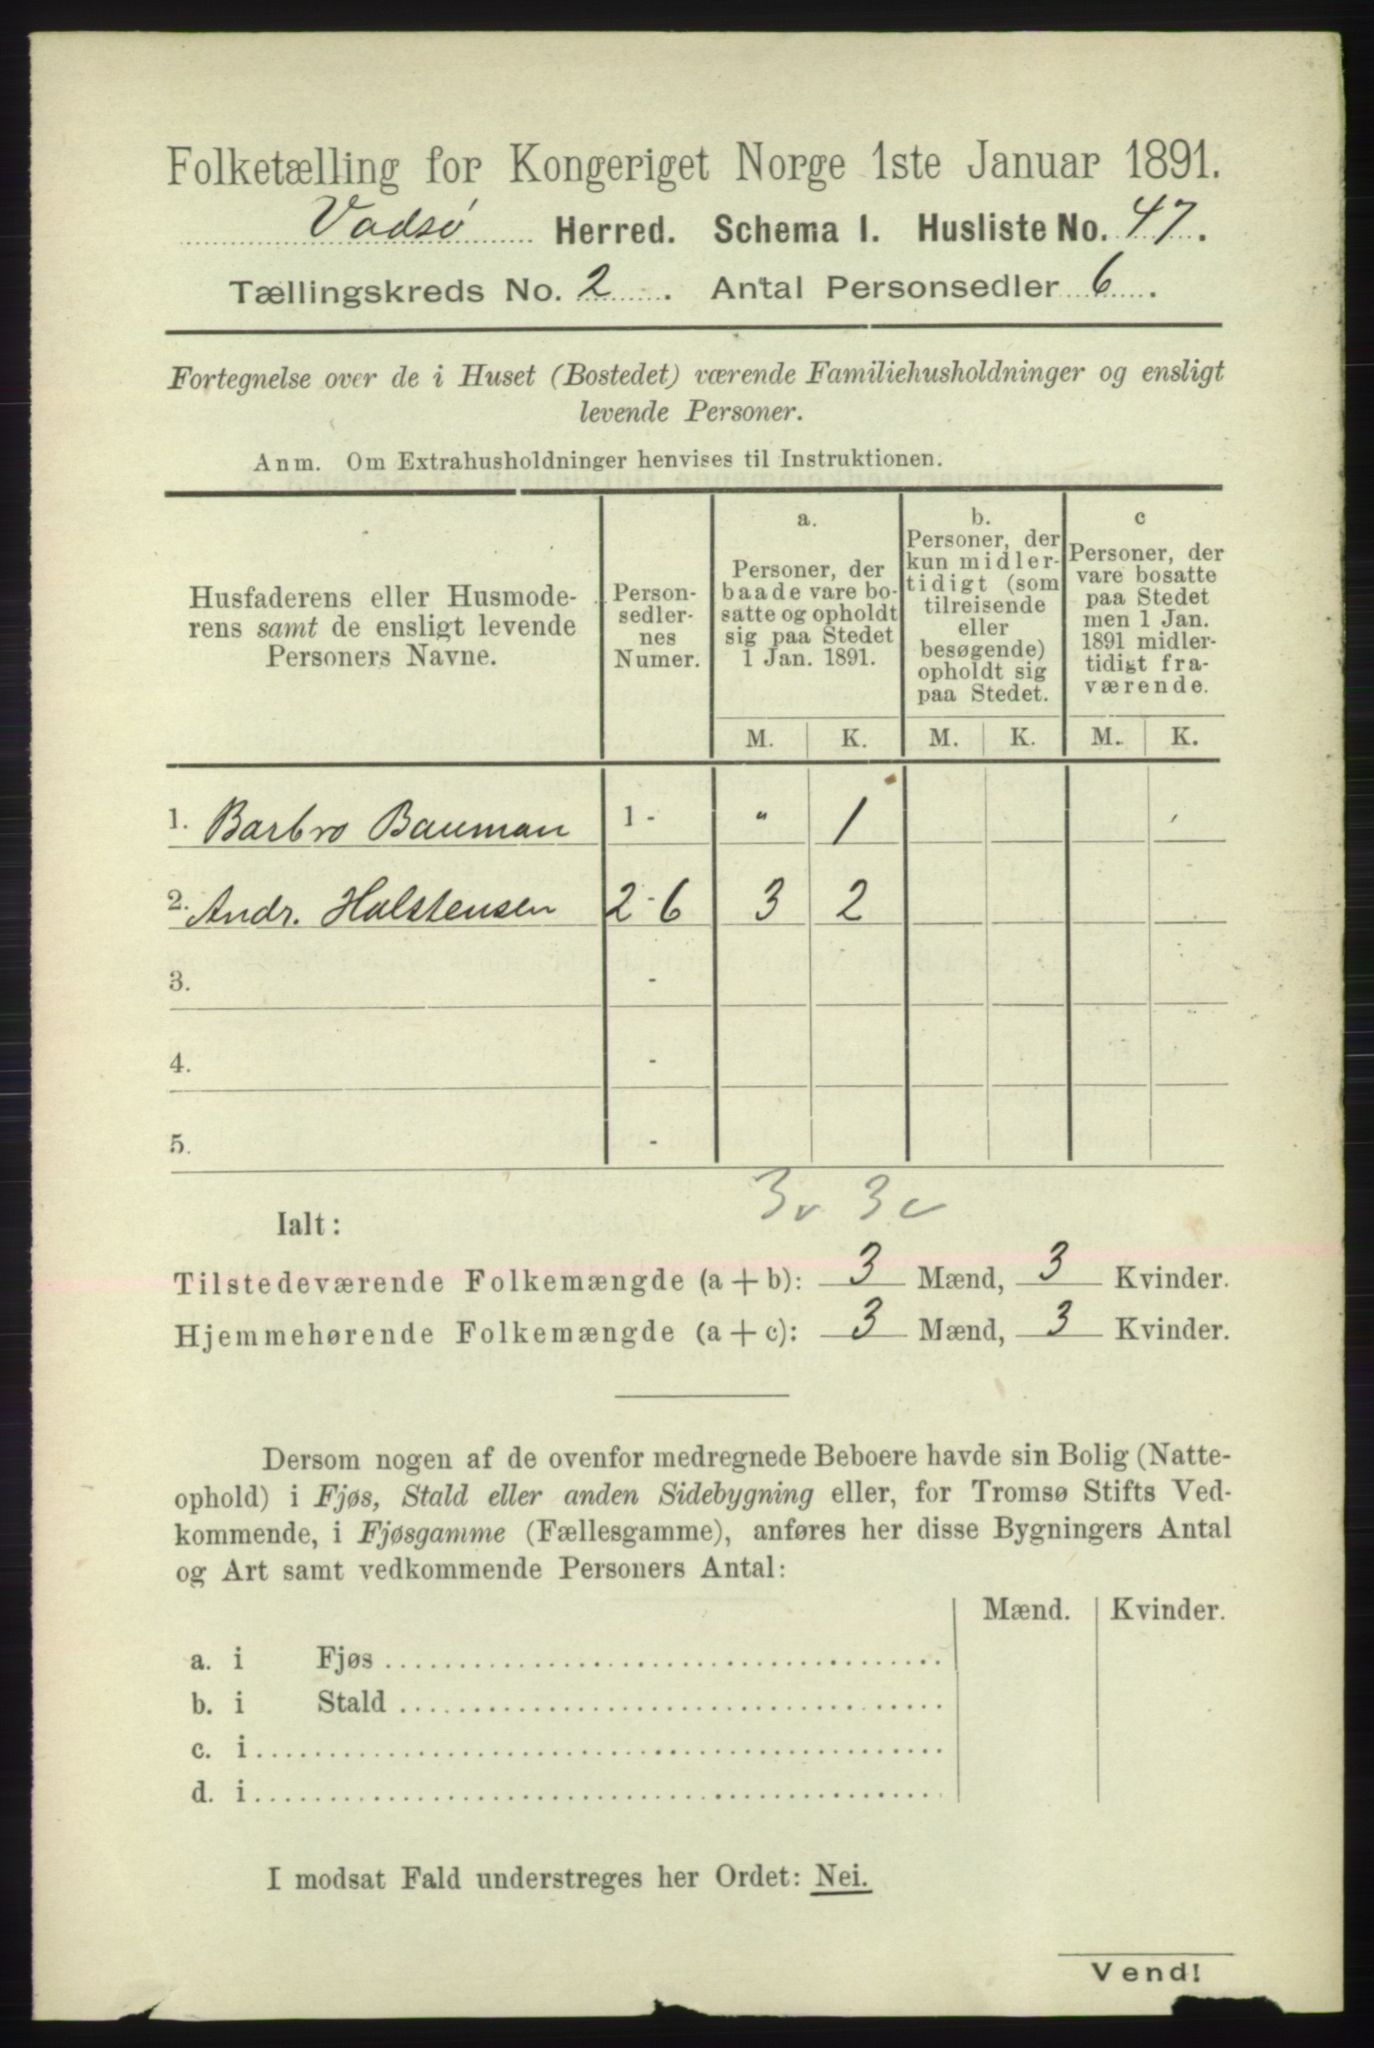 Folketælling for Kongeriget Norge 1ste Januar 1891.
Vadsø Herred. Schema I. Husliste No. 47.
Tællingskreds No. 2. Antal Personsedler 6.
Fortegnelse over de i Huset (Bostedet) værende Familiehusholdninger og ensligt
levende Personer.
Anm. Om Extrahusholdninger henvises til Instruktionen.
Husfaderens eller Husmode-
rens samt de ensligt levende
Personers Navne.
Person-
sedler-
nes
Numer.
a.
Personer, der
baade vare bo-
satte og opholdt
sig paa Stedet
1 Jan. 1891.
b.
Personer, der
kun midler-
tidigt (som
tilreisende
eller
besøgende)
opholdt sig
paa Stedet.
c
Personer, der
vare bosatte
paa Stedet
men 1 Jan.
1891 midler-
tidigt fra-
værende.
M. K. M. K. M. K.
1. Barbro Bauman 1 - " 1
2. Andr. Halstensen 2 - 6 3 2
3. -
4. -
5. -
3v 3v
Ialt:
Tilstedeværende Folkemængde (a + b): 3 Mænd, 3 Kvinder.
Hjemmehørende Folkemængde (a + c): 3 Mænd, 3 Kvinder.
Dersom nogen af de ovenfor medregnede Beboere havde sin Bolig (Natte-
ophold) i Fjøs, Stald eller anden Sidebygning eller, for Tromsø Stifts Ved-
kommende, i Fjøsgamme (Fællesgamme), anføres her disse Bygningers Antal
og Art samt vedkommende Personers Antal:
Mænd. Kvinder.
a. i Fjøs
b. i Stald
c. i
d. i
I modsat Fald understreges her Ordet: Nei.
Vend!